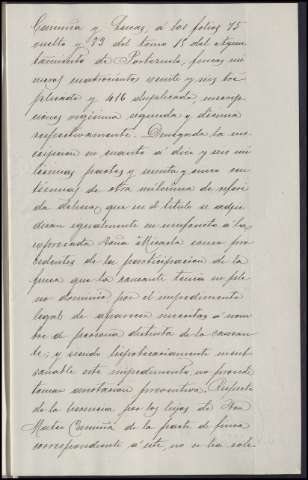 Ceruuña y Lucas, á los folios 75
vuelto y 83 del tomo 15 del Ayun
tamiento de Portezuelo, fincas nú
meros cuatrocientos veinte y seis tri
plicado y 416 duplicado, inscrip
ciones vigésima segunda y décima
respectivamente. Denegada la ins
cripción en cuanto á diez y seis mi
lésimas partes y sesenta y cinco cen
tésimas de otra milésima de referi
da dehesa, que en el título se adju
dican igualmente en usufructo á la
expresada Doña Micaela como pro
cedentes de la participación de la
finca que la causante tenía en ple
no dominio, por el impedimento
legal de aparecer inscritas á nom
bre de persona distinta de la causan
te; y siendo hipotecariamente insub
sanable este impedimento, no procede
tomar anotación preventiva. Respecto
de la herencia por los hijos de Don
Mateo de la parte de finca
correspondiente á éste, no se ha